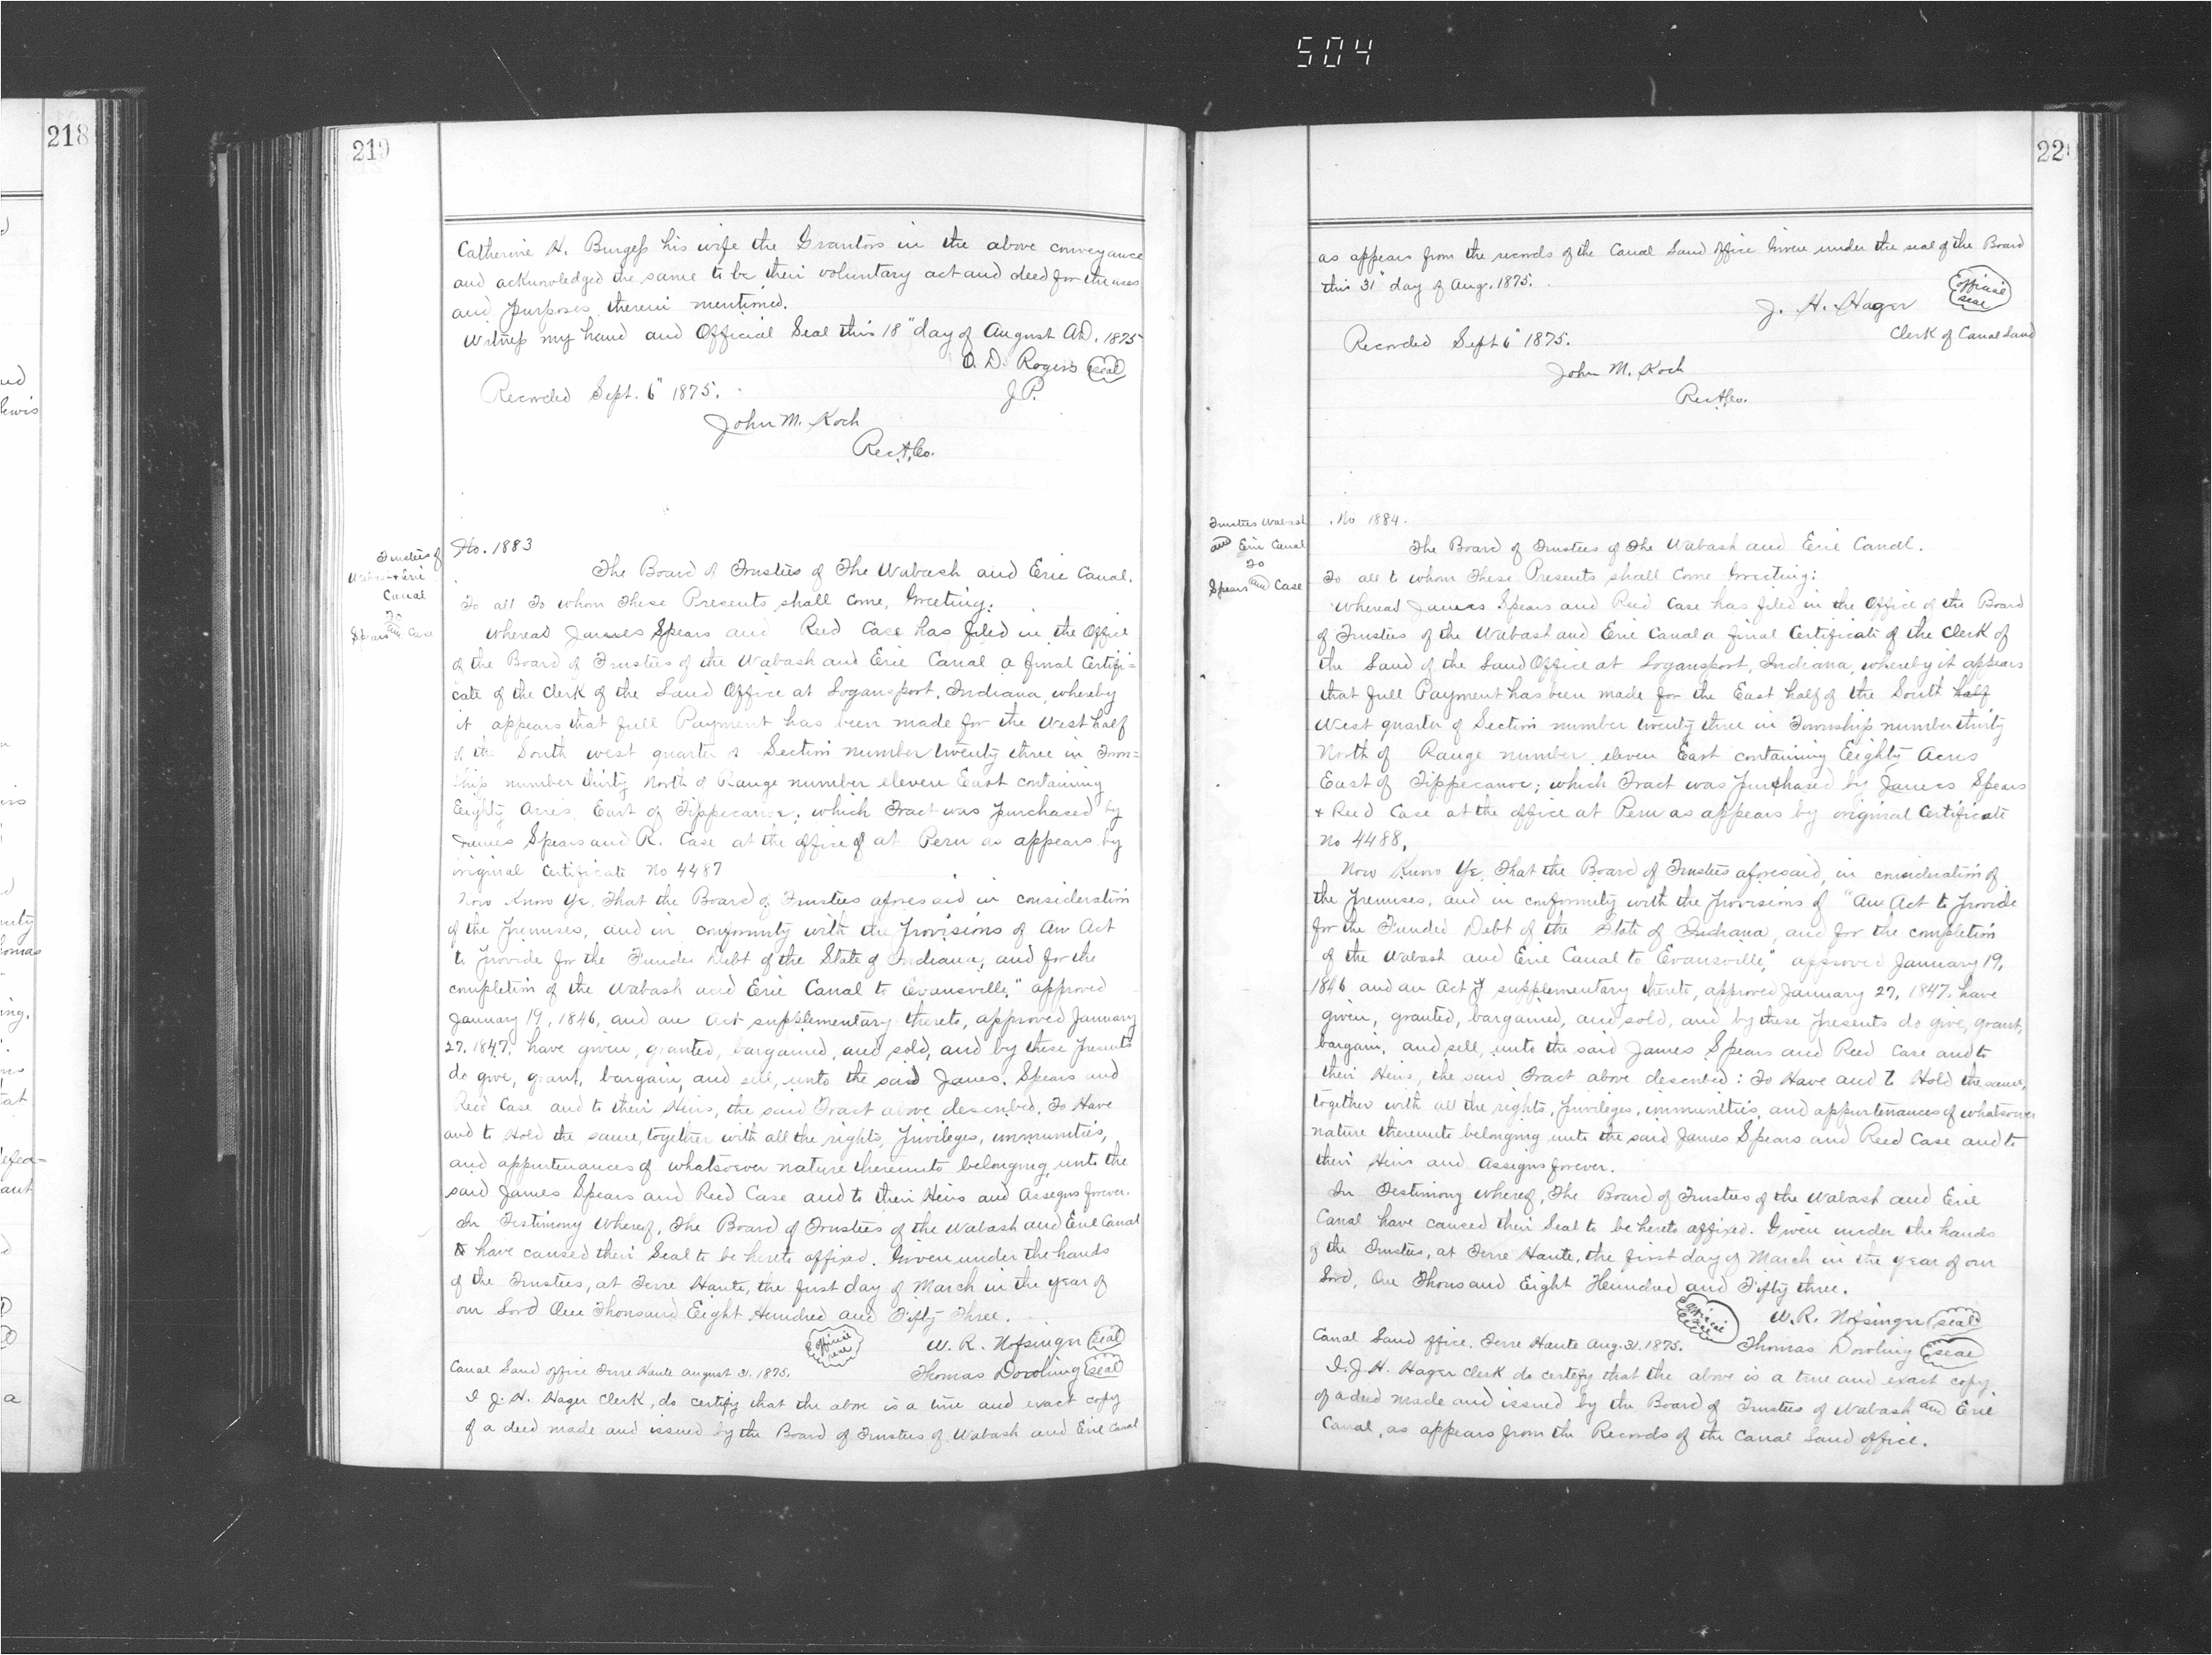 504
218
219
Catherine H. Burgess his wife the Grantors in the above conveyance
and acknowledged the same to be their voluntary act and deed for the uses
and purposes therein mentioned.
Witness my hand and Official Seal this 18" day of August AD. 1875
O. D. Rogers seal
J.P.
Recorded Sept. 6" 1875.
John M. Koch
Rec. A. Co.
Trustees of
Wabash & Erie
Canal
To
Spears and Case
No. 1883
The Board of Trustees of The Wabash and Erie Canal.
To all To whom These Presents shall Come, Greeting:
Whereas James Spears and Reed Case has filed in the Office
of the Board of Trustees of the Wabash and Erie Canal a final Certifi=
cate of the Clerk of the Land Office at Logansport, Indiana, whereby
it appears that full Payment has been made for the West half
of the South west quarter of Section number twenty three in Town=
ship number thirty North of Range number eleven East containing
Eighty Acres, East of Tippecanoe; which Tract was purchased by
James Spears and R. Case at the office of at Peru as appears by
original Certificate No 4487
Now Know Ye, That the Board of Trustees aforesaid in consideration
of the Premises, and in conformity with the Provisions of An Act
to Provide for the Funded Debt of the State of Indiana, and for the
completion of the Wabash and Erie Canal to Evansville," approved
January 19, 1846, and an Act supplementary thereto, approved January
27, 1847, have given, granted, bargained, and sold, and by these Presents
do give, grant, bargain, and sell, unto the said James. Spears and
Reed Case and to their Heirs, the said Tract above described. To Have
and to Hold the same, together with all the rights, Privileges, immunities,
and appurtenances of whatsoever nature thereunto belonging, unto the
said James Spears and Reed Case and to their Heirs and Assigns forever.
In Testimony Whereof, The Board of Trustees of the Wabash and Erie Canal
have caused their Seal to be hereto affixed. Given under the hands
of the Trustees, at Terre Haute, the first day of March in the year of
our Lord One Thousand Eight Hundred and Fifty Three.
Official seal
W. R. Nofsinger seal
Canal Land office Terre Haute August 31. 1875.
Thomas Dowling seal
I J. H. Hager Clerk, do certify that the above is a true and exact copy
of a deed made and issued by the Board of Trustees of Wabash and Erie Canal
220
as appears from the records of the Canal Land Office Given under the seal of the Board
this 31" day of Aug. 1875.
Official seal
J. H. Hager
Clerk of Canal Land
Recorded Sept 6" 1875.
John M. Koch
Rec. A. Co.
Trustees Wabash
and Erie Canal
To
Spears and Case
No 1884.
The Board of Trustees of The Wabash and Erie Canal.
To all to whom These Presents shall Come Greeting:
Whereas James Spears and Reed Case has filed in the Office of the Board
of Trustees of the Wabash and Erie Canal a final Certificate of the Clerk of
the Land of the Land Office at Logansport, Indiana, whereby it appears
that full Payment has been made for the East half of the South half
West quarter of Section number twenty three in Township number thirty
North of Range number eleven East containing Eighty Acres
East of Tippecanoe; which Tract was purchased by James Spears
& Reed Case at the office at Peru as appears by original Certificate
No 4488,
Now Know Ye, That the Board of Trustees aforesaid, in consideration of
the Premises, and in conformity with the Provisions of "An Act to Provide
for the Funded Debt of the State of Indiana, and for the completion
of the Wabash and Erie Canal to Evansville," approved January 19,
1846 and an Act supplementary thereto, approved January 27, 1847, have
given, granted, bargained, and sold, and by these Presents do give, grant,
bargain, and sell, unto the said James Spears and Reed Case and to
their Heirs, the said Tract above described: To Have and To Hold the same,
together with all the rights, Privileges, immunities, and appurtenances of whatsoever
nature thereunto belonging unto the said James Spears and Reed Case and to
their Heirs and Assigns forever.
In Testimony whereof, The Board of Trustees of the Wabash and Erie
Canal have caused their Seal to be hereto affixed. Given under the hands
of the Trustees, at Terre Haute, the first day of March in the year of our
Lord, One Thousand Eight Hundred and Fifty three.
Official seal
W. R. Nofsinger seal
Canal Land office. Terre Haute Aug. 31. 1875.
Thomas Dowling seal
I. J H. Hager Clerk do certify that the above is a true and exact copy
of a deed made and issued by the Board of Trustees of Wabash and Erie
Canal, as appears from the Records of the Canal Land office.